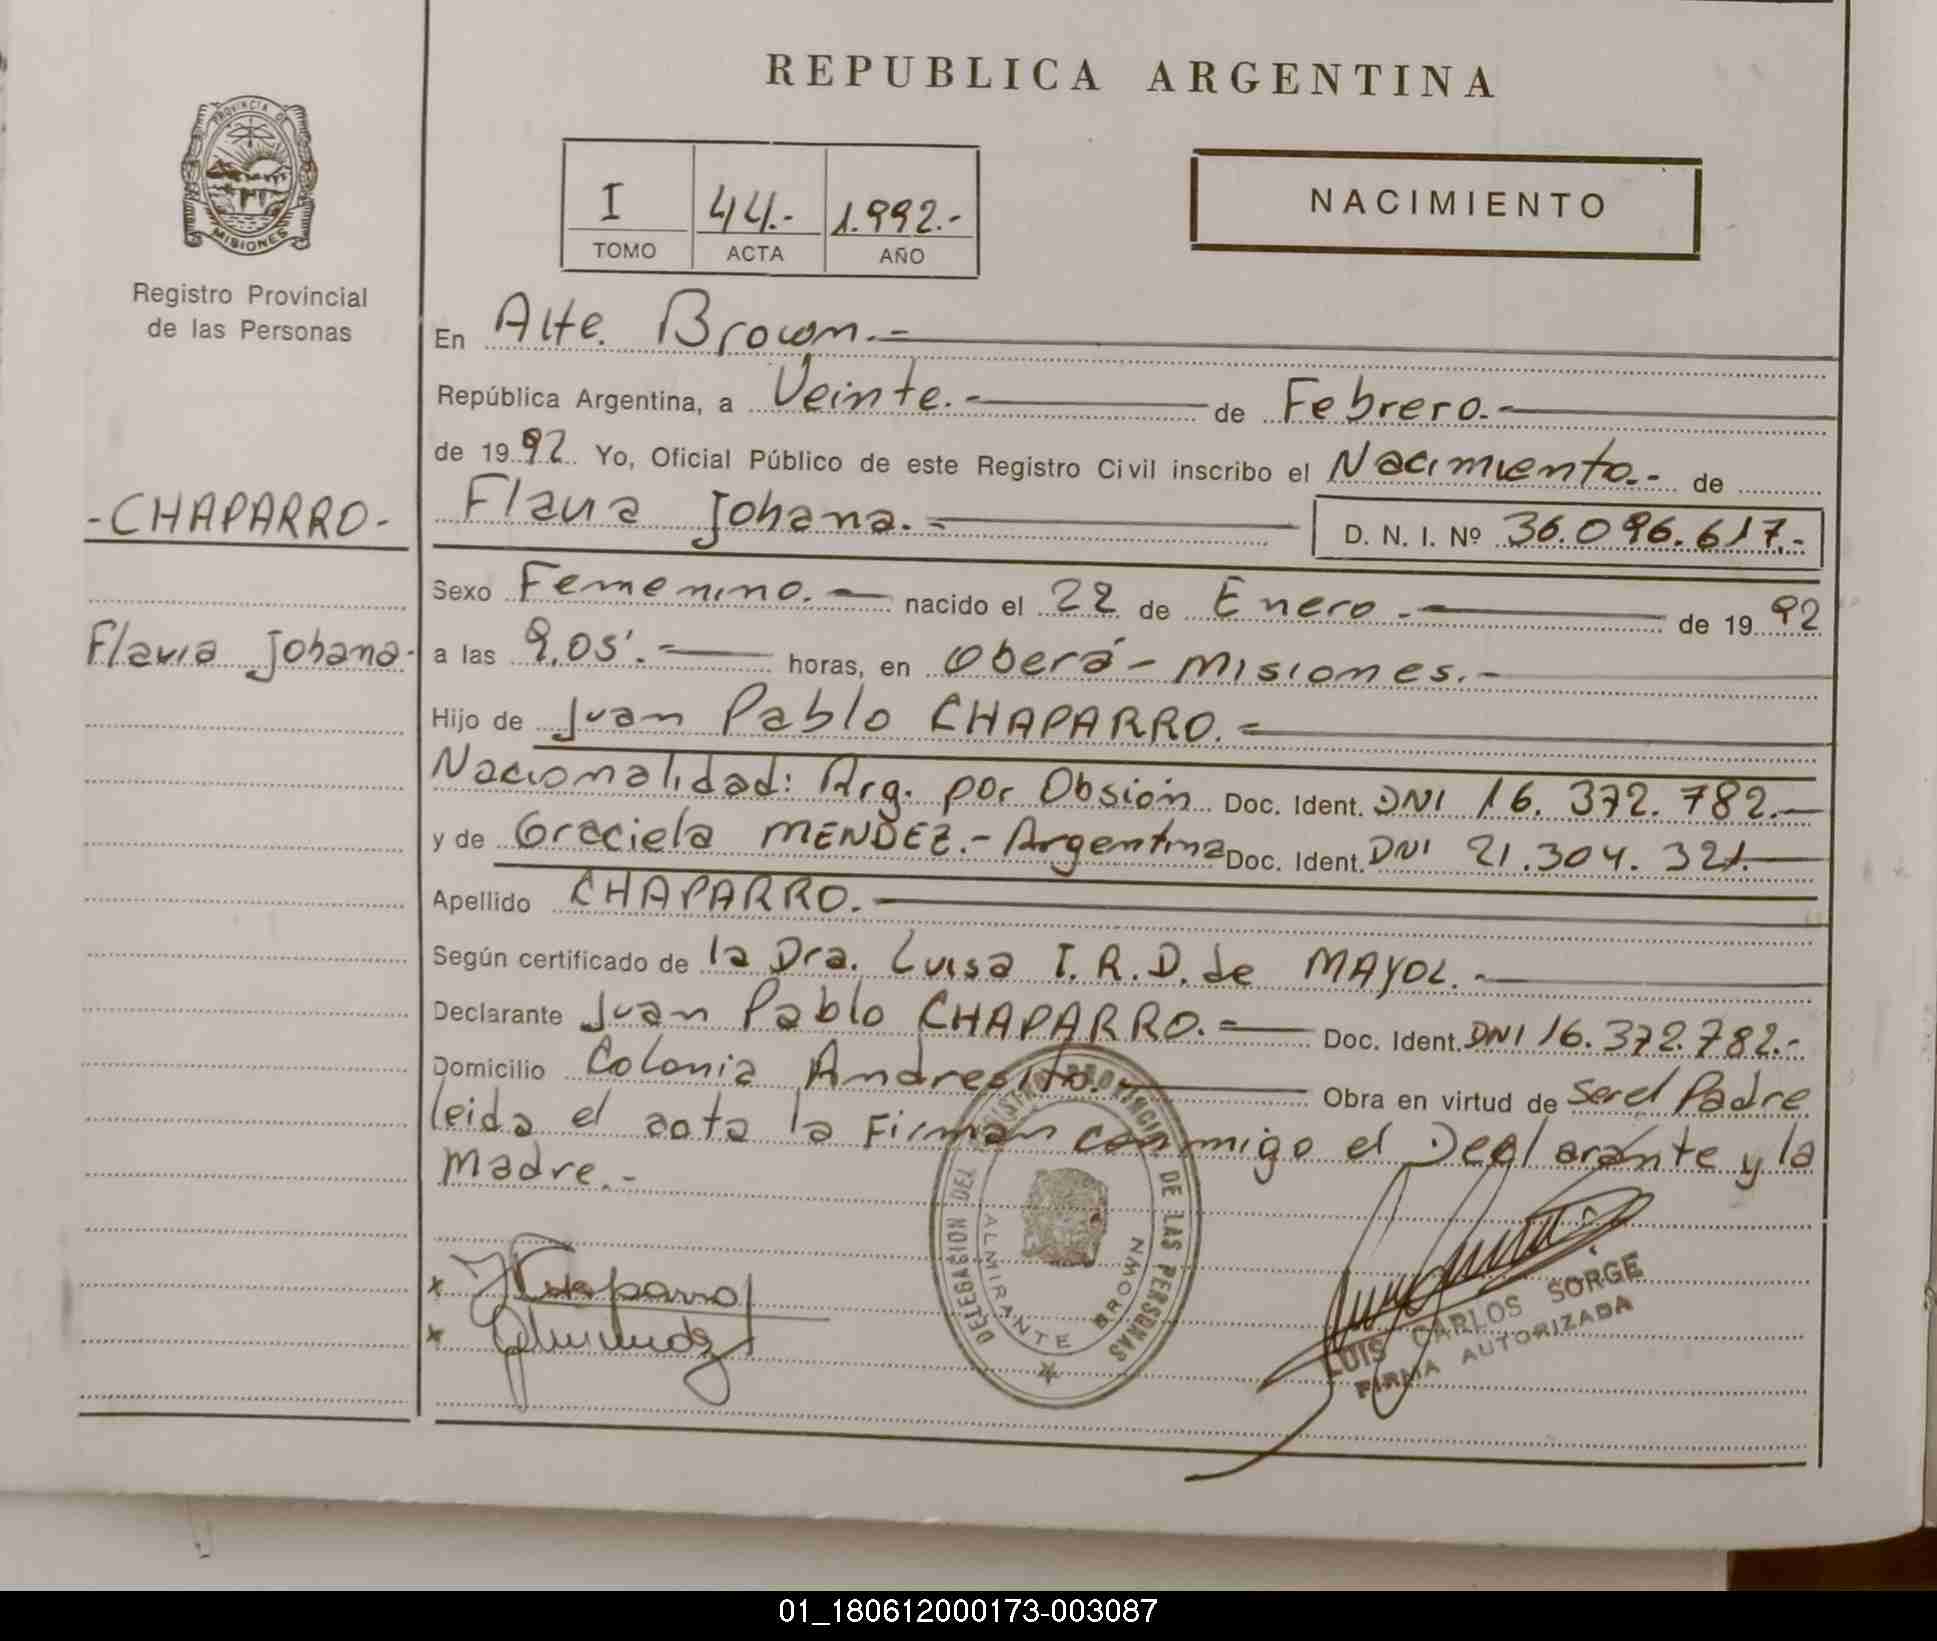 REPUBLICA ARGENTINA
PROVINCIA DE
MISIONES
Registro Provincial
de las Personas
I 44.- 1.992.-
TOMO ACTA AÑO
NACIMIENTO
En Alte. Brown.-
República Argentina, a Veinte.- de Febrero.-
de 1992 Yo, Oficial Público de este Registro Civil inscribo el Nacimiento.- de
-CHAPARRO-
Flavia Johana.- D. N. I. Nº 36.096.617.-
Sexo Femenino.- nacido el 22 de Enero.- de 1992
Flavia Johana.
a las 9,05'.- horas, en Oberá - Misiones.-
Hijo de Juan Pablo CHAPARRO.-
Nacionalidad: Arg. por Obsión Doc. Ident. DNI 16.372.782.-
y de Graciela MENDEZ.- Argentina Doc. Ident. DNI 21.304.321.-
Apellido CHAPARRO.-
Según certificado de la Dra. Luisa I.R.D. de MAYOL.-
Declarante Juan Pablo CHAPARRO.- Doc. Ident. DNI 16.372.782.-
Domicilio Colonia Andresito.- Obra en virtud de ser el Padre
leida el acta la Firman conmigo el Declarante y la
Madre.-
DELEGACION DEL REGISTRO PROVINCIAL DE LAS PERSONAS
ALMIRANTE BROWN
LUIS CARLOS SORGE
FIRMA AUTORIZADA
01_180612000173-003087